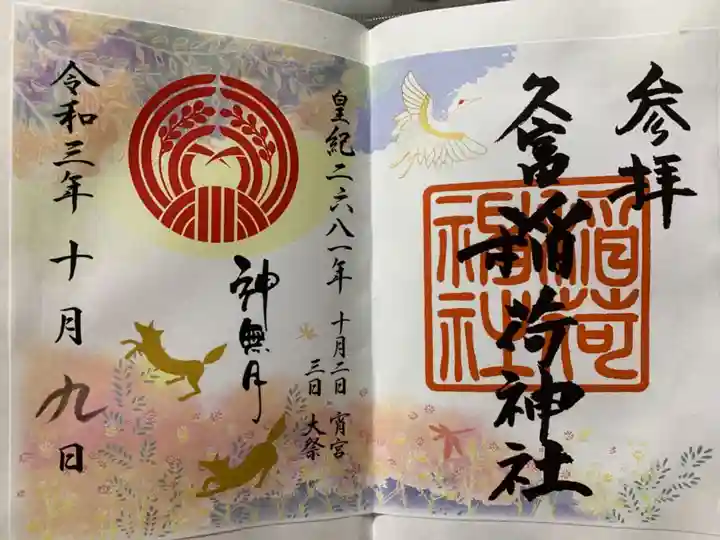 参拝
久富稲荷神社
稲荷神社
皇紀二六八一年 十月二日 宵宮
三日 大祭
神無月
令和三年十月九日